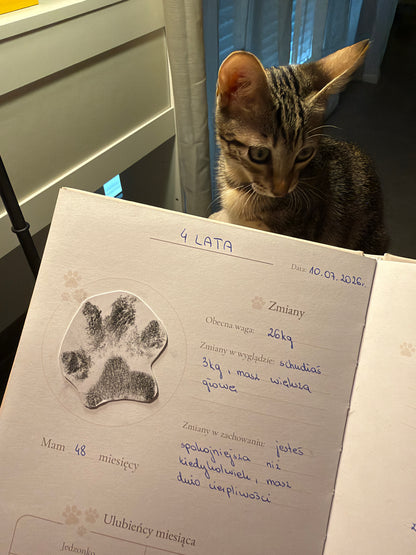 4 LATA
Data: 10.07.2026.
Zmiany
Obecna waga: 26kg
Zmiany w wyglądzie: schudłaś
3kg, masz większą
głowę
Zmiany w zachowaniu: jesteś
spokojniejsza niż
kiedykolwiek, masz
dużo cierpliwości
Mam 48 miesięcy
Ulubieńcy miesiąca
Jedzonko